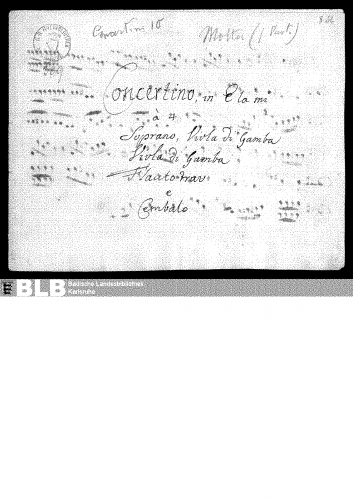 Concertino 10 Molter (1 Part.)
Concertino, in E la mi
à 4
Soprano, Viola di Gamba
Viola di Gamba
Flauto trav
e
Cembalo
BLB Badische Landesbibliothek
Karlsruhe